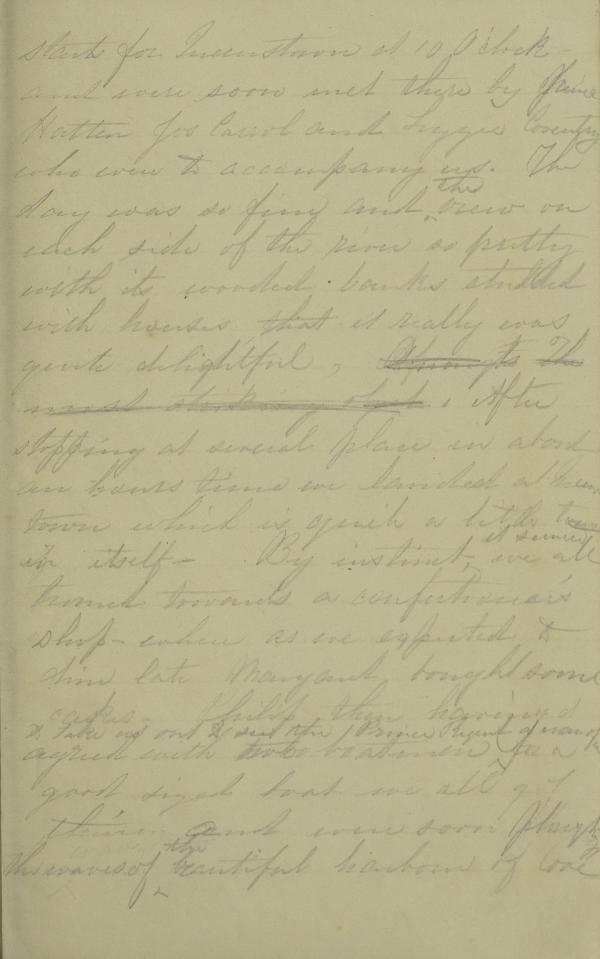 starts for Queenstown at 10 O'clock -
and were soon met there by
Hatten Jos Carrol and Lizzie Coventry
who were to accompany us. The
the
day was so fine and view on
each side of the river so pretty
with its wooded banks studded
with houses that it really was
quite delightful,
most striking . After
stopping at several place in about
an hours time we landed at Queens
town which is quite a little town
in itself - By instinct, it seemed we all
turned towards a confectioner's
shop - where as we expected to
dine late Margaret bought some
cakes - Philip then having
to take us out to see the Prince Regent
agreed with two boatmen for a
good sized boat we all got
there and were soon
the
the waves of beautiful harbour of Cove